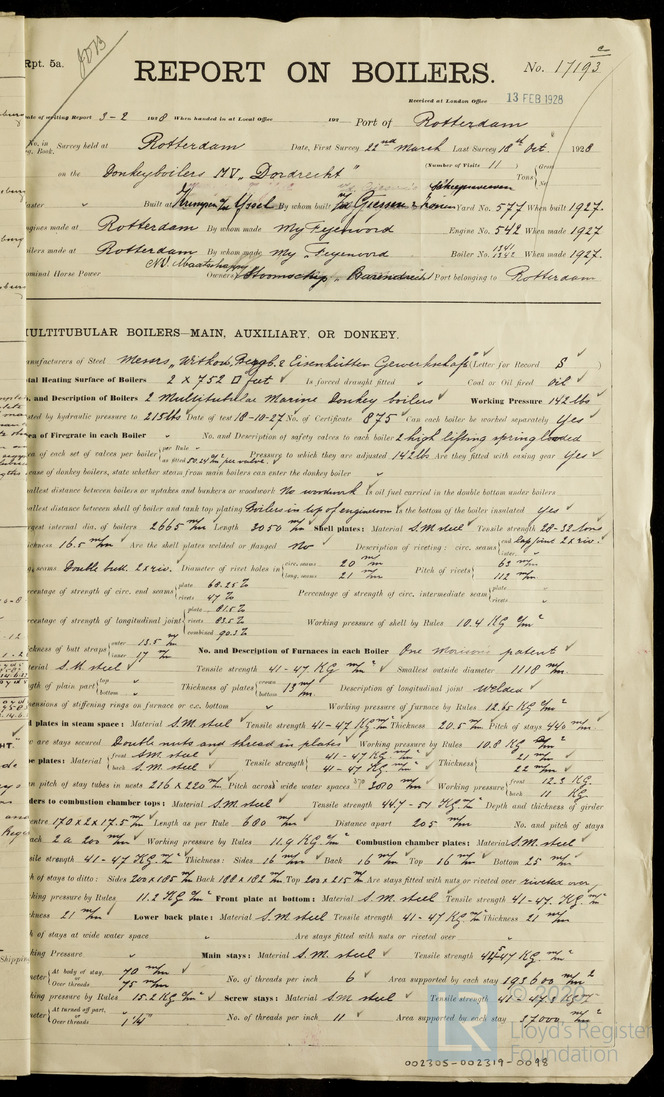 Rpt. 5a.
REPORT ON BOILERS.
No. 17193
Received at London Office 13 FEB 1928
Date of writing Report 3-2 1928 When handed in at Local Office 192 Port of Rotterdam
No. in Survey held at Rotterdam Date, First Survey 22nd March Last Survey 18th Oct. 1928
on the Donkeyboilers MV. "Dordrecht" (Number of Visits 11) Tons Gross Net
Built at Krimpen a/d Yssel By whom built v/d Giessen & Zonen Yard No. 577 When built 1927.
Engines made at Rotterdam By whom made My Fyenoord Engine No. 542 When made 1927
Boilers made at Rotterdam By whom made My "Feyenoord Boiler No. 1341 1342 When made 1927.
Nominal Horse Power Owners NV. Maatschappy Stoomschip "Barendrecht" Port belonging to Rotterdam
MULTITUBULAR BOILERS—MAIN, AUXILIARY, OR DONKEY.
Manufacturers of Steel Messrs "Witkow. Bergb. & Eisenhütten Gewerkschaft" (Letter for Record S)
Total Heating Surface of Boilers 2 x 752 □ feet Is forced draught fitted " Coal or Oil fired oil
and Description of Boilers 2 Multitubular Marine Donkey boilers Working Pressure 142 lbs
Tested by hydraulic pressure to 215 lbs Date of test 18-10-27 No. of Certificate 875 Can each boiler be worked separately Yes
Area of Firegrate in each Boiler " No. and Description of safety valves to each boiler 2 high lifting spring loaded
Area of each set of valves per boiler per Rule as fitted Pressure to which they are adjusted 142 lbs Are they fitted with easing gear Yes
In case of donkey boilers, state whether steam from main boilers can enter the donkey boiler "
Smallest distance between boilers or uptakes and bunkers or woodwork No woodwork Is oil fuel carried in the double bottom under boilers
Smallest distance between shell of boiler and tank top plating Boilers in top of engineroom Is the bottom of the boiler insulated yes
Largest internal dia. of boilers 2665 m/m Length 3050 m/m Shell plates: Material S.M steel Tensile strength 28-32 tons
Thickness 16.5 m/m Are the shell plates welded or flanged No Description of riveting: circ. seams end lap joint 2x riv. inter. "
long. seams Double butt. 2x riv. Diameter of rivet holes in circ. seams 20 m/m long. seams 21 m/m Pitch of rivets 62 m/m 112 m/m
Percentage of strength of circ. end seams plate 68.25% rivets 47% Percentage of strength of circ. intermediate seam plate rivets "
Percentage of strength of longitudinal joint plate 81.5% rivets 83.5% combined 90.3% Working pressure of shell by Rules 10.4 KG c/m²
Thickness of butt straps outer 13.5 m/m inner 17 m/m No. and Description of Furnaces in each Boiler One Morison's patent
Material S.M steel Tensile strength 41-47 KG m/m² Smallest outside diameter 1118 m/m.
Length of plain part top bottom " Thickness of plates crown bottom 13 m/m. Description of longitudinal joint welded
Dimensions of stiffening rings on furnace or c.c. bottom " Working pressure of furnace by Rules 12.65 KG c/m²
End plates in steam space: Material S.M steel Tensile strength 41-47 KG m/m² Thickness 20.5 m/m Pitch of stays 440 m/m.
How are stays secured Double nuts and thread in plates Working pressure by Rules 10.8 KG c/m²
Tube plates: Material front S.M steel back S.M. steel Tensile strength 41-47 KG. m/m² 41-47 KG. m/m² Thickness 21 m/m 22 m/m
Mean pitch of stay tubes in nests 216 x 220 m/m Pitch across wide water spaces 300 m/m Working pressure front 12.3 KG. back 11 KG.
Girders to combustion chamber tops: Material S.M steel Tensile strength 44.7-51 KG. m/m² Depth and thickness of girder
at centre 170 x 2 x 17.5 m/m Length as per Rule 680 m/m Distance apart 205 m/m No. and pitch of stays
in each 2 a 200 m/m Working pressure by Rules 11.9 KG c/m² Combustion chamber plates: Material S.M steel
Tensile strength 41-47 KG. m/m² Thickness: Sides 16 m/m Back 16 m/m Top 16 m/m Bottom 25 m/m
Pitch of stays to ditto: Sides 200 x 185 m/m Back 188 x 182 m/m Top 200 x 215 m/m Are stays fitted with nuts or riveted over riveted over
Working pressure by Rules 11.2 KG c/m² Front plate at bottom: Material S.M steel Tensile strength 41-47. KG. m/m²
Thickness 21 m/m Lower back plate: Material S.M steel Tensile strength 41-47 KG m/m² Thickness 21 m/m
Pitch of stays at wide water space " Are stays fitted with nuts or riveted over "
Working Pressure " Main stays: Material S.M. steel Tensile strength
Diameter At body of stay, 70 m/m or Over threads 75 m/m No. of threads per inch 6 Area supported by each stay 193600 m/m²
Working pressure by Rules 15.2 KG c/m² Screw stays: Material S.M steel Tensile strength 41-47.8 KG
Diameter At turned off part, " or Over threads 1¼" No. of threads per inch 11 Area supported by each stay 37000 m/m²
© 2020
LR
Lloyd's Register
Foundation
002305-002319-0098